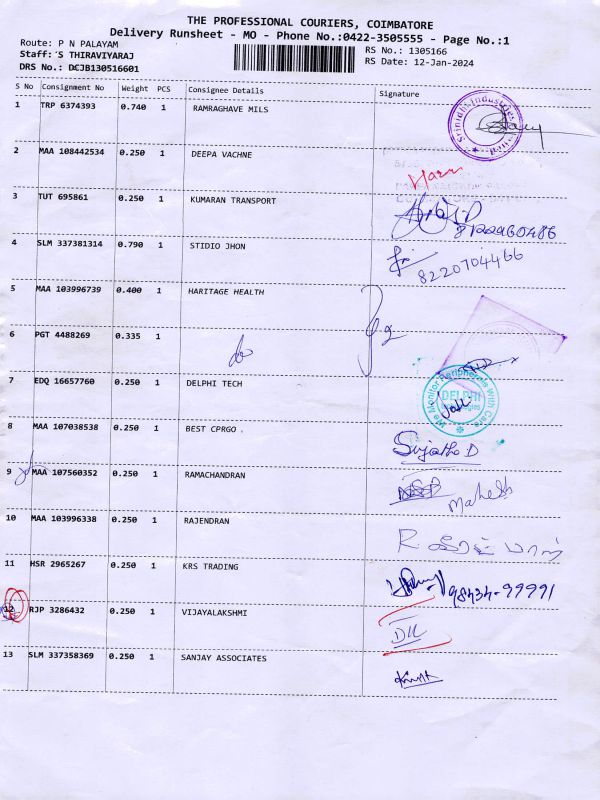 THE PROFESSIONAL COURIERS, COIMBATORE
Delivery Runsheet - MO - Phone No.:0422-3505555 - Page No.:1
Route: P N PALAYAM
Staff: S THIRAVIYARAJ
DRS No.: DCJB130516601
RS No.: 1305166
RS Date: 12-Jan-2024
S No Consignment No Weight PCS Consignee Details Signature
1 TRP 6374393 0.740 1 RAMRAGHAVE MILS
2 MAA 108442534 0.250 1 DEEPA VACHNE
3 TUT 695861 0.250 1 KUMARAN TRANSPORT
8122960486
4 SLM 337381314 0.790 1 STIDIO JHON
8220704466
5 MAA 103996739 0.400 1 HARITAGE HEALTH
6 PGT 4488269 0.335 1
7 EDQ 16657760 0.250 1 DELPHI TECH
We Monitor Peripherals With Care
DELPHI
8 MAA 107038538 0.250 1 BEST CPRGO .
Sujatha D
9 MAA 107560352 0.250 1 RAMACHANDRAN
Mahesh
10 MAA 103996338 0.250 1 RAJENDRAN
11 HSR 2965267 0.250 1 KRS TRADING
98434-99991
12 RJP 3286432 0.250 1 VIJAYALAKSHMI
13 SLM 337358369 0.250 1 SANJAY ASSOCIATES